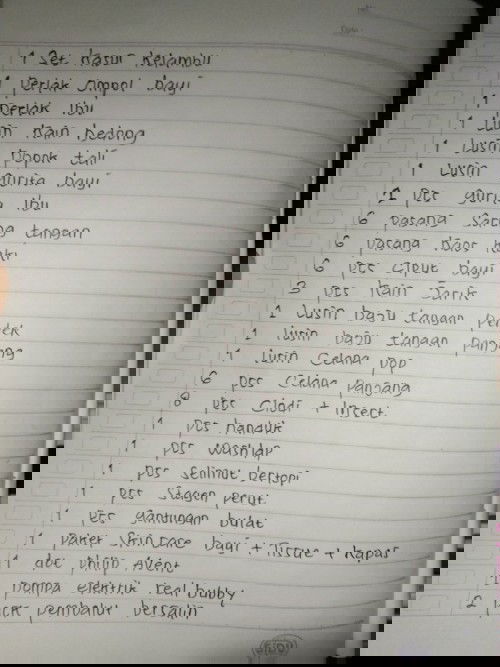 1 Set Kasur Kelambu
1 Perlak Ompol Bayi
Perlak Ibu
1 Lusin Kain Bedong
1 Lusin Popok tali
1 Lusin Gurita bayi
1 Pcs Gurita Ibu
6 Pasang Sarung tangan
6 Pasang Kaos kaki
6 Pcs Ciput bayi
3 Pcs Kain Jarik
1 Lusin baju tangan pendek
1 Lusin baju tangan panjang
1 Lusin Celana pop
6 Pcs Celana panjang
8 Pcs Clodi + insert
1 Pcs Handuk
1 Pcs Washlap
1 Pcs Selimut bertopi
1 Pcs Slayer perut
1 Pcs gantungan bulat
1 Paket Skin care bayi + Tissue + Kapas
1 dot Philip Avent
1 Pompa elektrik real bubby
2 pembalut bersalin